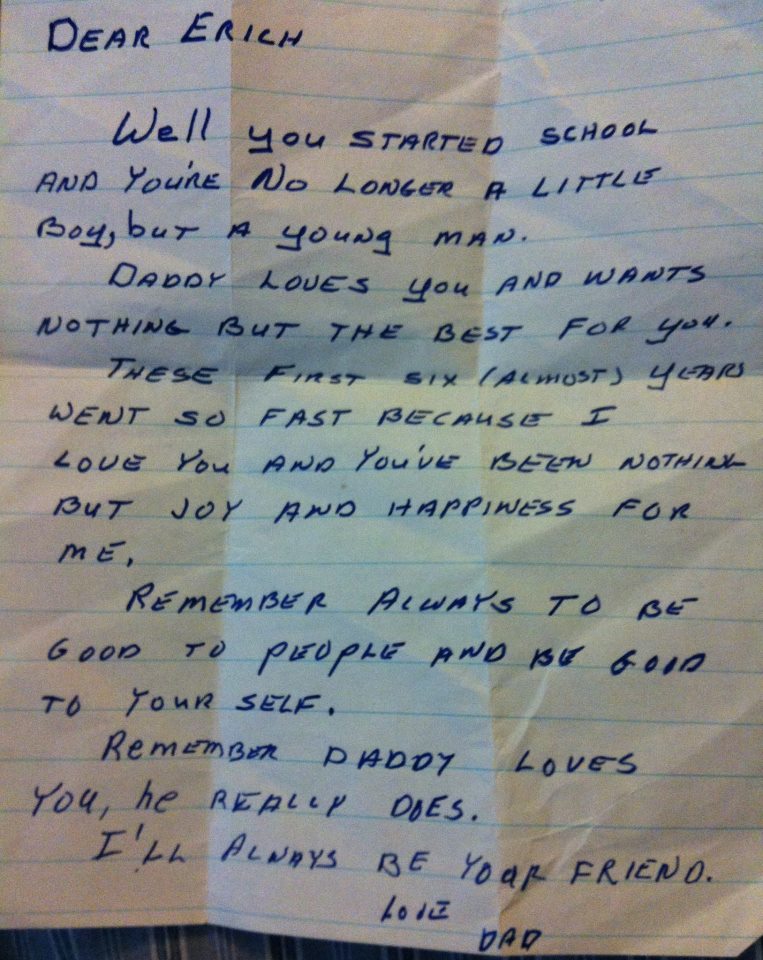 DEAR ERICH
Well you STARTED SCHOOL
AND YOU'RE NO LONGER A LITTLE
Boy, buT A young MAN.
DADDY LOVES you AND WANTS
NOTHING BUT THE BEST FOR you.
THESE FIRST SIX (ALMOST) YEARS
WENT SO FAST BECAUSE I
LOVE YOU AND YOU'VE BEEN NOTHING
BUT JOY AND HAPPINESS FOR
ME.
REMEMBER ALWAYS TO BE
GOOD TO PEOPLE AND BE GOOD
TO YOUR SELF.
REMEMBER DADDY LOVES
YOU, he REALLY DOES.
I'LL ALWAYS BE YOUR FRIEND.
LOVE
DAD